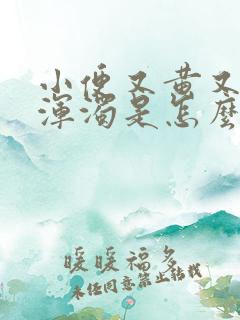 小便又黄又
浑浊是怎麽
暖暖福多
未经同意禁止转载